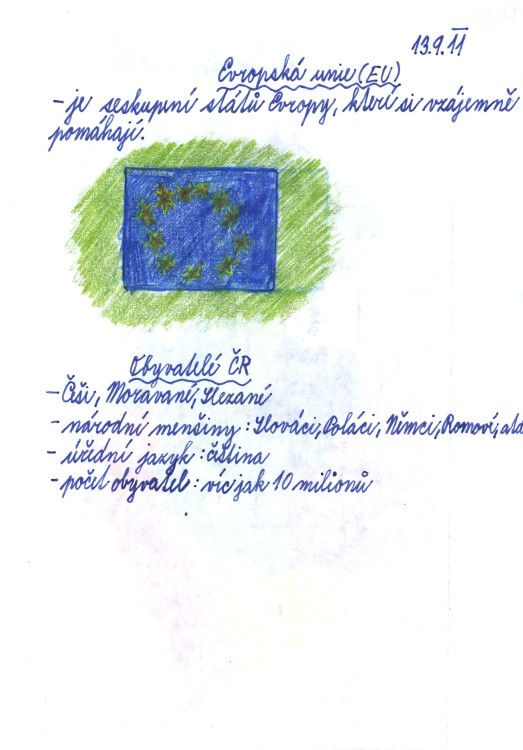 13.9.11
Evropská unie (EU)
- je seskupní států Evropy, kterí si vzájemně
pomáhají.
Obyvatelé ČR
- Češi, Moravané, Slezané
- národní menšiny : Slováci, Poláci, Němci, Romoví, atd
- úřední jazyk : čeština
- počet obyvatel : víc jak 10 milionů